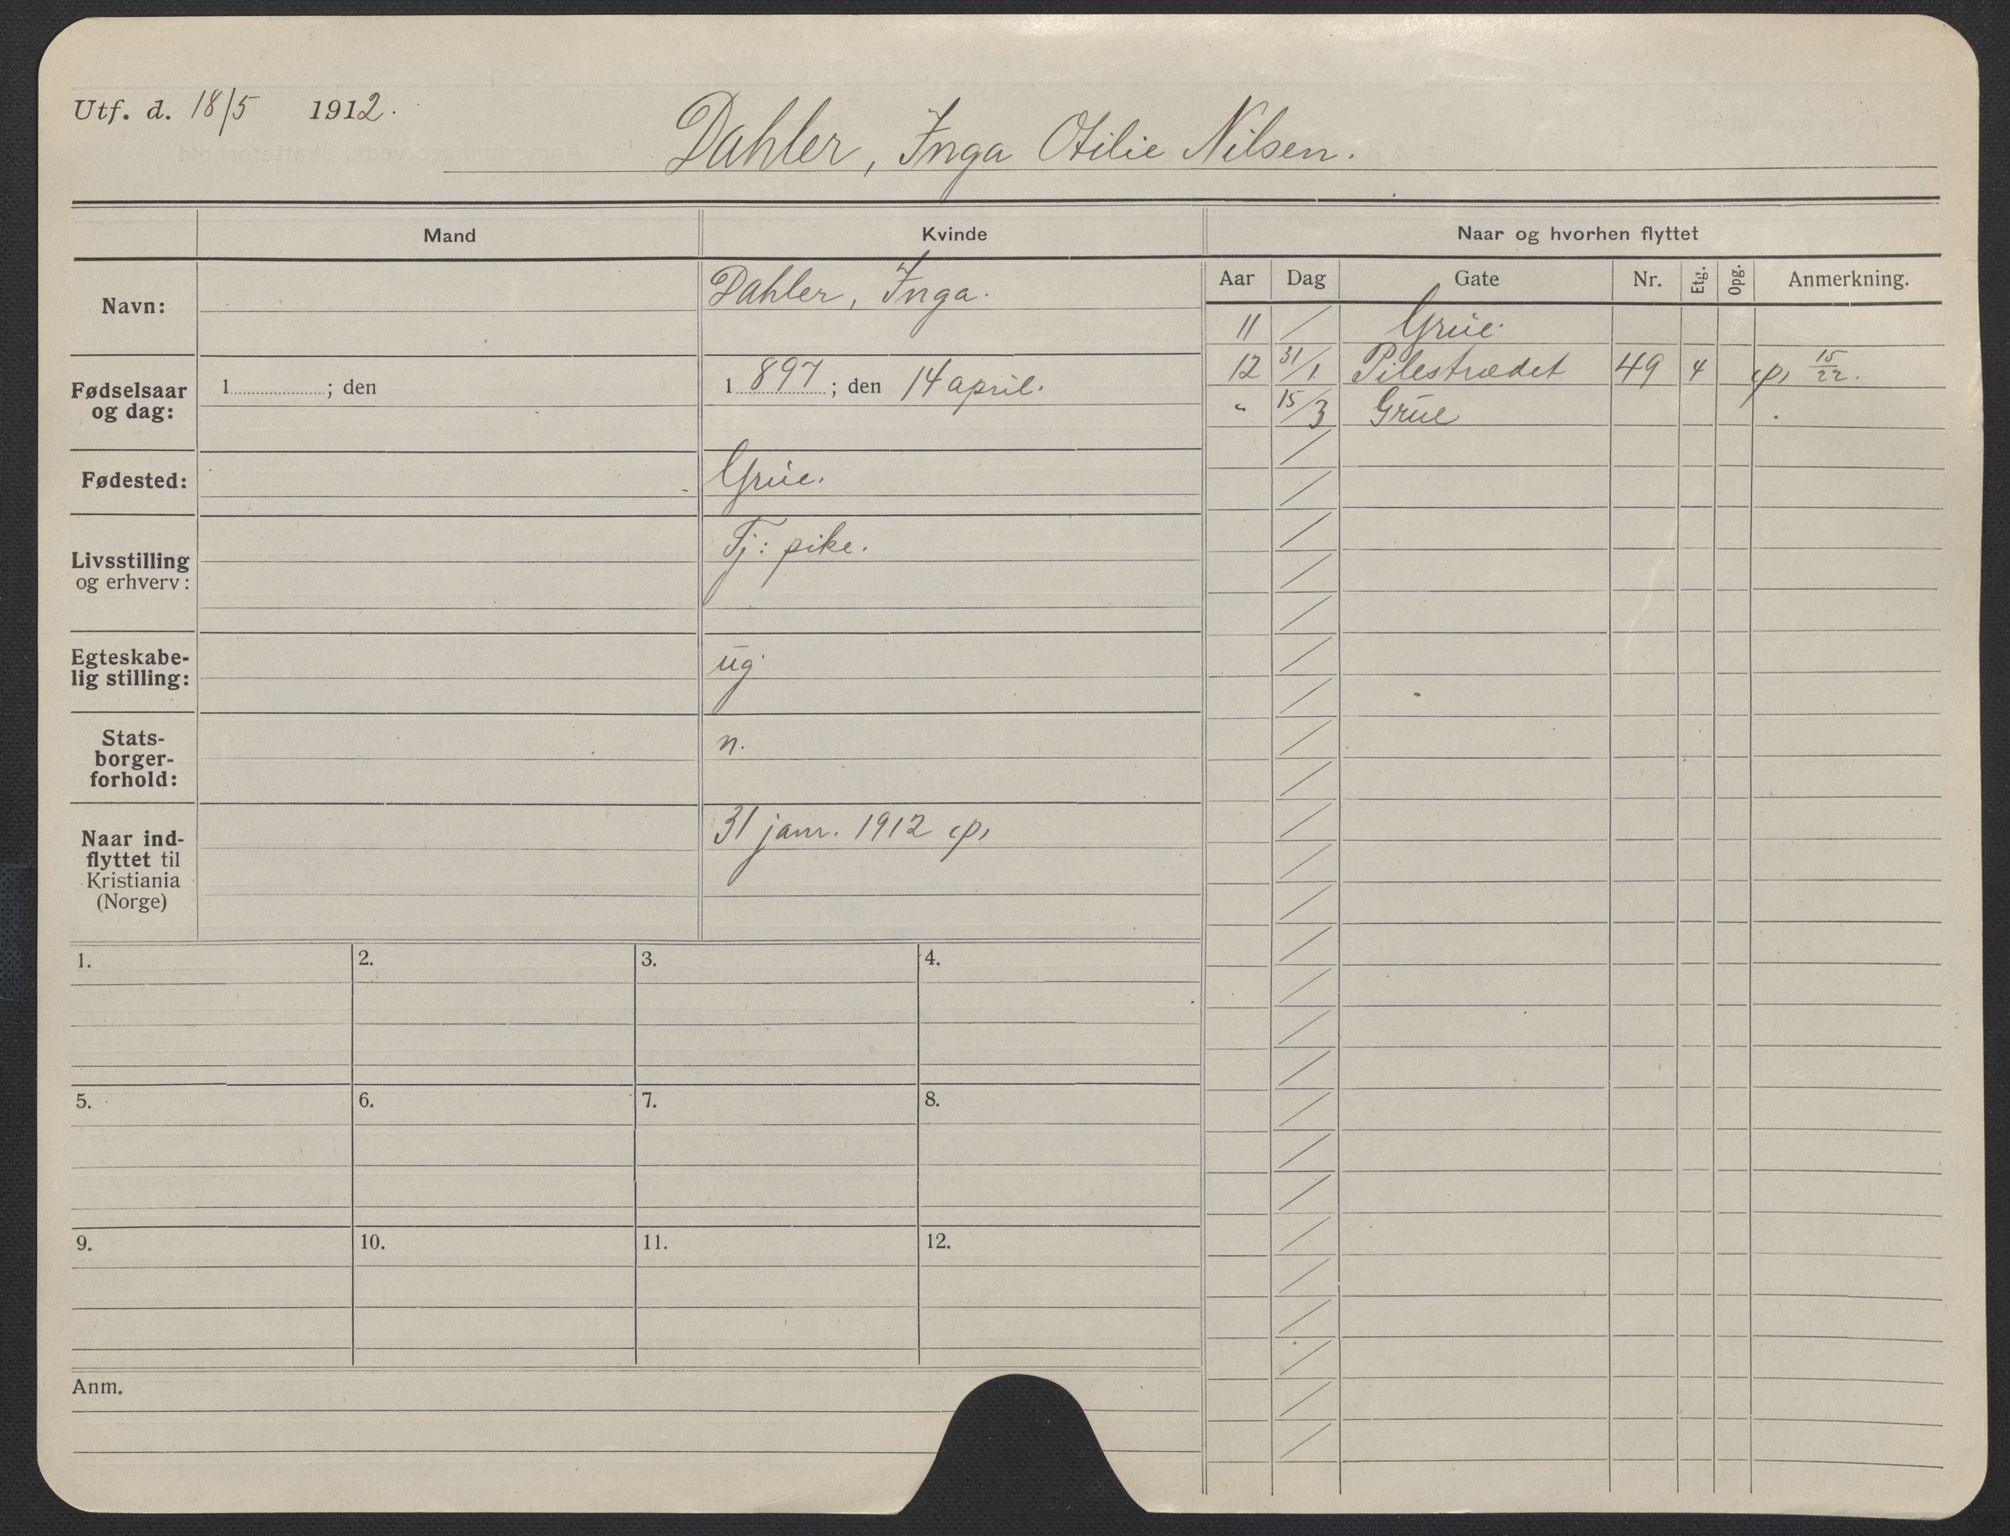 Utf. d. 18/5 1912.
Dahler, Inga Otilie Nilsen.
Mand
Kvinde
Naar og hvorhen flyttet
Navn:
Dahler, Inga.
Fødselsaar og dag:
1 ; den
1 897 ; den 14 april.
Fødested:
Grue.
Livsstilling
og erhverv:
Tj: pike.
Egteskabe-
lig stilling:
ug.
Stats-
borger-
forhold:
n.
Naar ind-
flyttet til
Kristiania
(Norge)
31 janr. 1912
Aar Dag Gate Nr. Etg. Opg. Anmerkning.
11 / Grue.
12 31/1 Pilestrædet 49 4 15/22.
" 15/3 Grue
1. 2. 3. 4.
5. 6. 7. 8.
9. 10. 11. 12.
Anm.